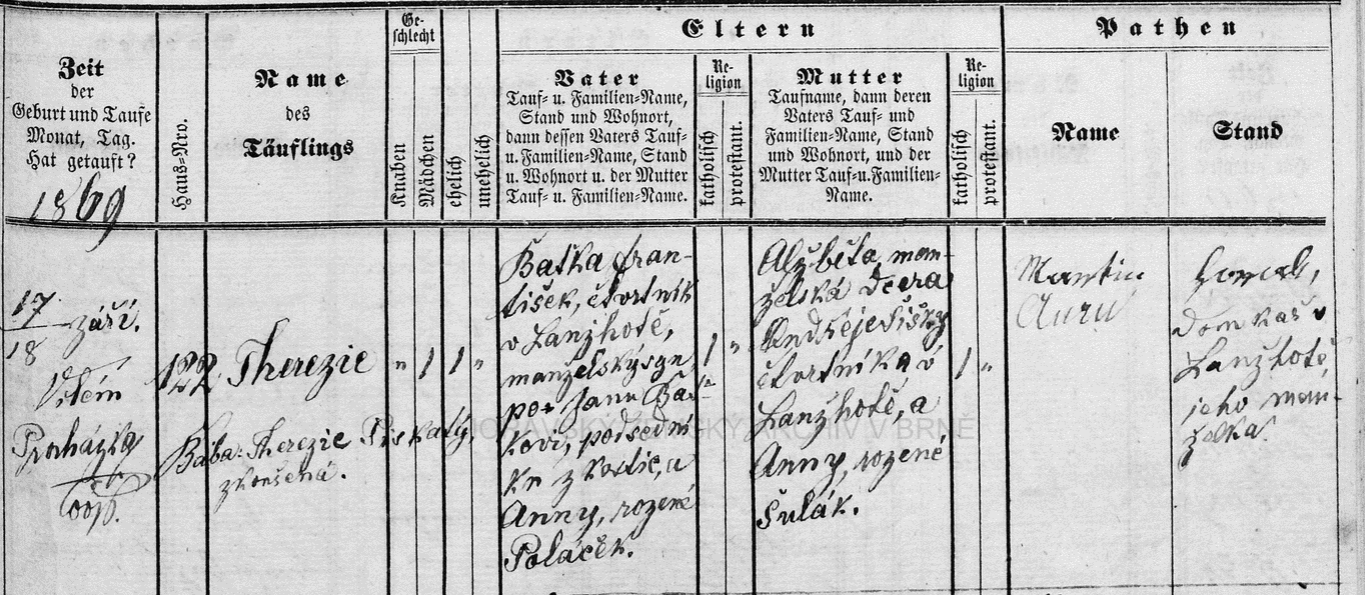 Ge-
schlecht
Eltern
Pathen
Zeit
der
Geburt und Taufe
Monat, Tag.
Hat getauft?
1869
Haus-Nro.
Name
des
Täuflings
Knaben
Mädchen
ehelich
unehelich
Vater
Tauf- u. Familien-Name,
Stand und Wohnort,
dann dessen Vaters Tauf-
u. Familien-Name, Stand
u. Wohnort u. der Mutter
Tauf- u. Familien-Name.
Re-
ligion
katholisch
protestant.
Mutter
Taufname, dann deren
Vaters Tauf- und
Familien-Name, Stand
und Wohnort, und der
Mutter Tauf-u.Familien-
Name.
Re-
ligion
katholisch
protestant.
Name
Stand
17
18
září.
Vilém
Procházka
Coop.
122
Therezie
" 1 1 "
Bába: Therezie Piskatý,
zkoušená.
Baťka Fran-
tišek, čtvrtník
v Lanžhotě,
manželský syn
po + Janu Bať-
kovi, podsední-
ku z Kostic, a
Anny, rozené
Poláček.
1 "
Alžběta, man-
želská dcera
Ondřeje Šišky
čtvrtníka v
Lanžhotě, a
Anny, rozené
Šulák.
1 "
Martin
domkář v
Lanžhotě,
jeho man-
želka.
MORAVSKÝ ZEMSKÝ ARCHIV V BRNĚ